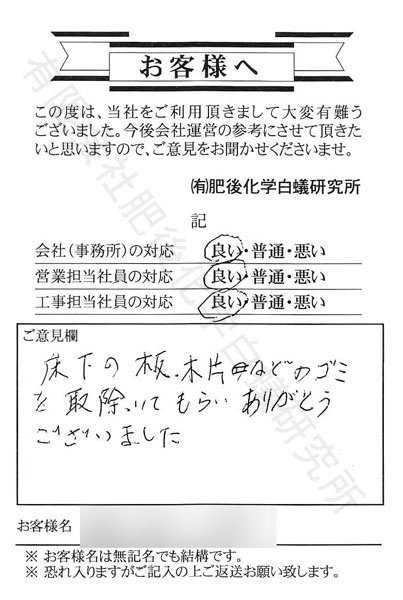 お客様へ
この度は、当社をご利用頂きまして大変有難う
ございました。今後会社運営の参考にさせて頂きた
いと思いますので、ご意見をお聞かせくださいませ。
㈲肥後化学白蟻研究所
記
会社（事務所）の対応 良い・普通・悪い
営業担当社員の対応 良い・普通・悪い
工事担当社員の対応 良い・普通・悪い
ご意見欄
床下の板、木片などのゴミ
を取除いてもらい ありがとう
ございました
お客様名
※ お客様名は無記名でも結構です。
※ 恐れ入りますがご記入の上ご返送お願い致します。
有限会社肥後化学白蟻研究所